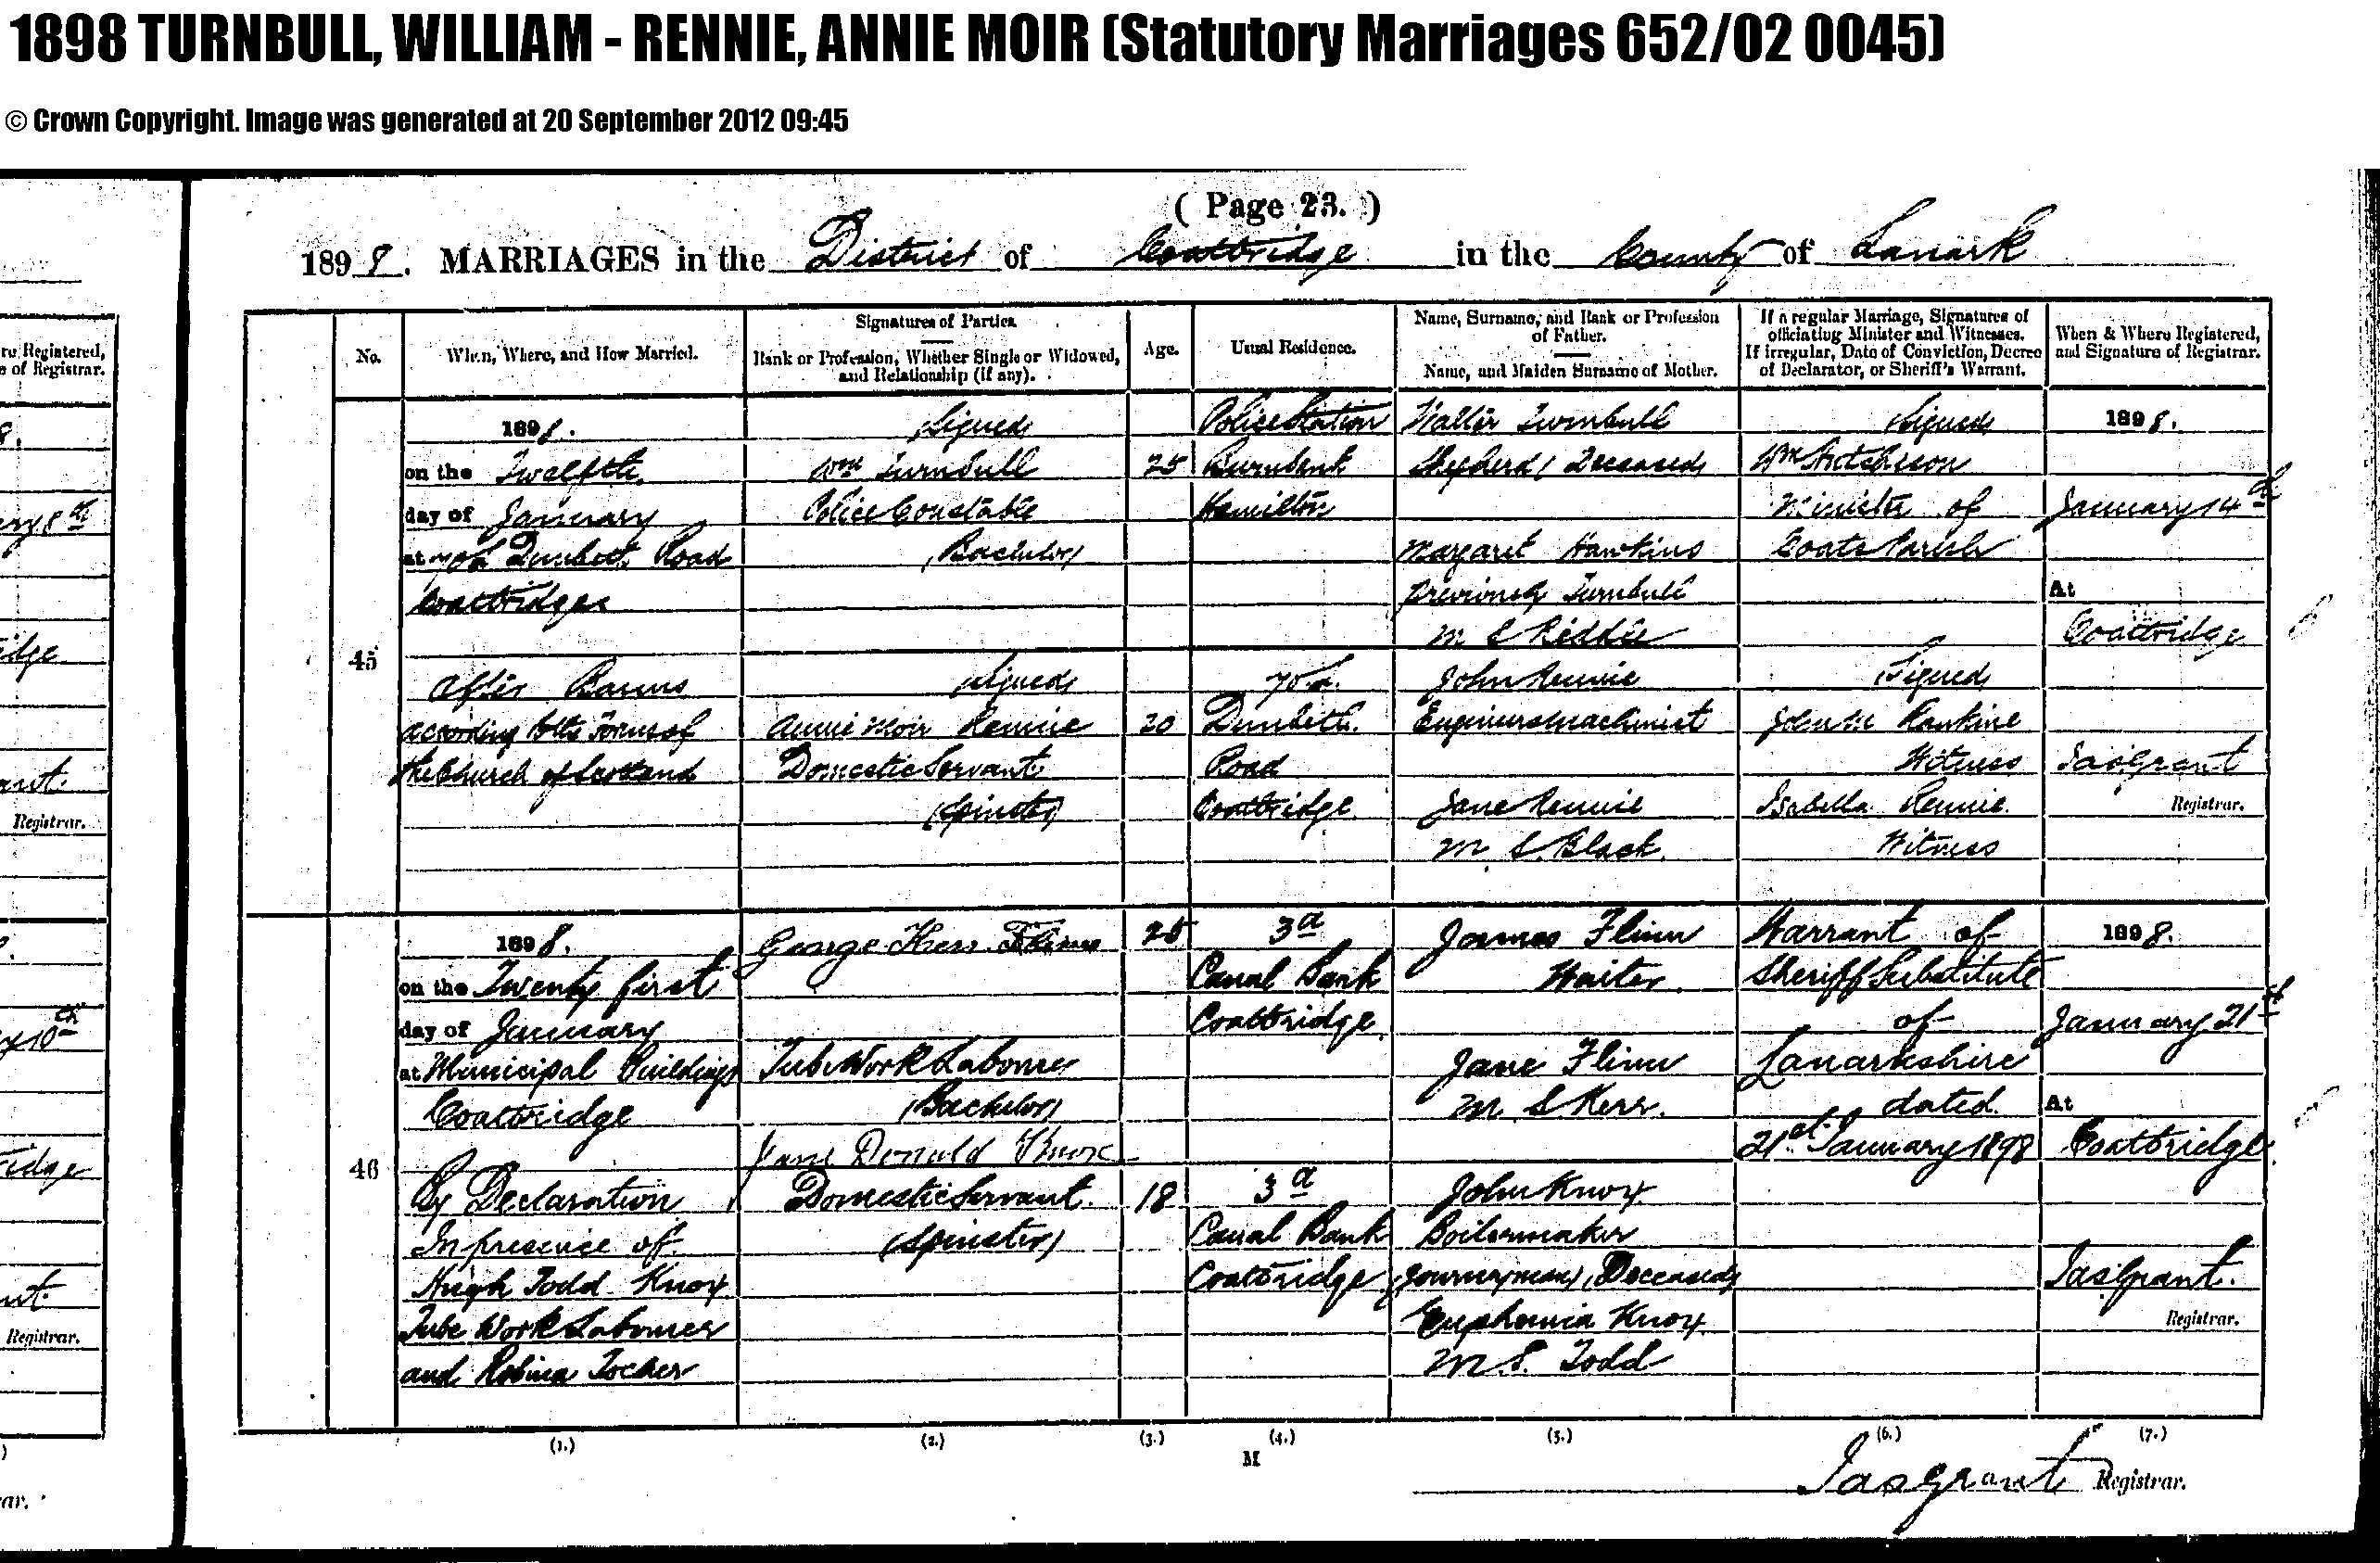 1898 TURNBULL, WILLIAM - RENNIE, ANNIE MOIR (Statutory Marriages 652/02 0045)
© Crown Copyright. Image was generated at 20 September 2012 09:45
( Page 23. )
1898. MARRIAGES in the District of Coatbridge in the County of Lanark
re Registered,
e of Registrar.
Registrar.
Registrar.
No.
When, Where, and How Married.
Signatures of Parties.
Rank or Profession, Whether Single or Widowed,
and Relationship (if any).
Age.
Usual Residence.
Name, Surname, and Rank or Profession
of Father.
Name, and Maiden Surname of Mother.
If a regular Marriage, Signatures of
officiating Minister and Witnesses.
If irregular, Date of Conviction, Decree
of Declarator, or Sheriff's Warrant.
When & Where Registered,
and Signature of Registrar.
45
1898.
on the Twelfth
day of January
at Dunbeth Road
Coatbridge
After Banns
according to the Forms of
the Church of Scotland
(Signed)
Wm Turnbull
Police Constable
(Bachelor)
(Signed)
Annie Moir Rennie
Domestic Servant
(Spinster)
25
20
Police Station
Burnbank
Hamilton
Dunbeth
Road
Coatbridge
Walter Turnbull
Shepherd (Deceased)
Margaret Hawkins
previously Turnbull
M S Riddle
John Rennie
Engineers Machinist
Jane Rennie
M. S. Black.
(Signed)
Wm Hutchison
Minister of
Coats Parish
(Signed)
Rankine
Witness
Isabella Rennie.
Witness
1898.
January 14th
At
Coatbridge
Jas Grant
Registrar.
46
1898.
on the Twenty first
day of January
at Municipal Buildings
Coatbridge
By Declaration
In presence of
Hugh Todd Knox
Tube Work Labourer
and Robina Tocher
George Kerr Flinn
Tube Work Labourer
(Bachelor)
Jane Donald Knox
Domestic Servant.
(Spinster)
25
18
3a
Canal Bank
Coatbridge
3a
Canal Bank
Coatbridge
James Flinn
Waiter.
Jane Flinn
M. S Kerr.
John Knox
Boilermaker
(Journeyman) (Deceased)
Euphemia Knox
M.S. Todd
Warrant of
Sheriff Substitute
of
Lanarkshire
dated
21st January 1898
1898.
January 21st
At
Coatbridge
Jas Grant.
Registrar.
(1.) (2.) (3.) (4.) (5.) (6.) (7.)
M
Jas Grant Registrar.